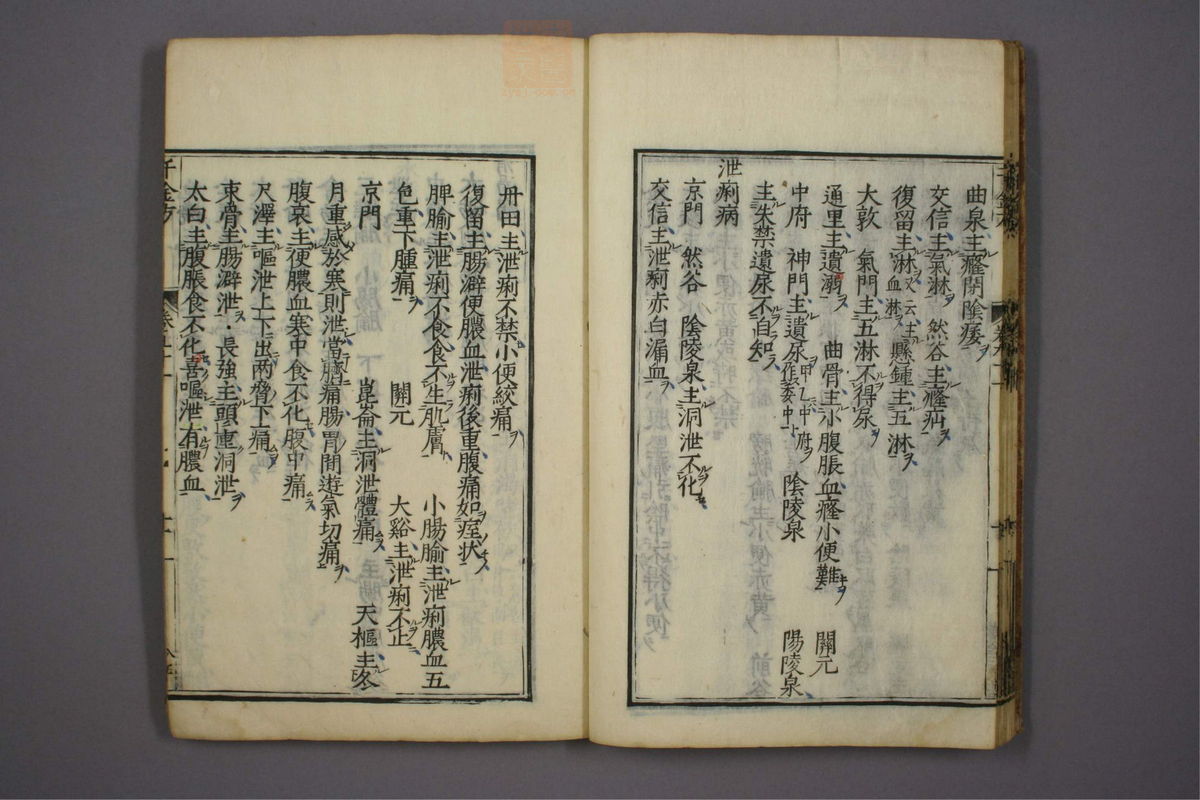 曲泉主癃閉陰痿
交信主氣淋　然谷主癃疝
復留主淋又云主血淋懸鍾主五淋
大敦　氣門主五淋不得尿
通里主遺溺　曲骨主小腹脹血癃小便難　關元
中府　神門主遺尿甲乙中府作委中　陰陵泉　陽陵泉
主失禁遺尿不自知
泄痢病
京門　然谷　陰陵泉主洞泄不化
交信主泄痢赤白漏血
丹田主泄痢不禁小便絞痛
復留主腸澼便膿血泄痢後重腹痛如痓状
脾腧主泄痢不食食不生肌膚　小腸腧主泄痢膿血五
色重下腫痛　關元　大谿主泄痢不止
京門　崑崙主洞泄體痛　天樞主冬
月重感於寒則泄當臍痛腸胃間遊氣切痛
腹哀主便膿血寒中食不化腹中痛
尺澤主嘔泄上下出兩脅下痛
束骨主腸澼泄・長強主頭重洞泄
太白主腹脹食不化喜嘔泄有膿血
千金方